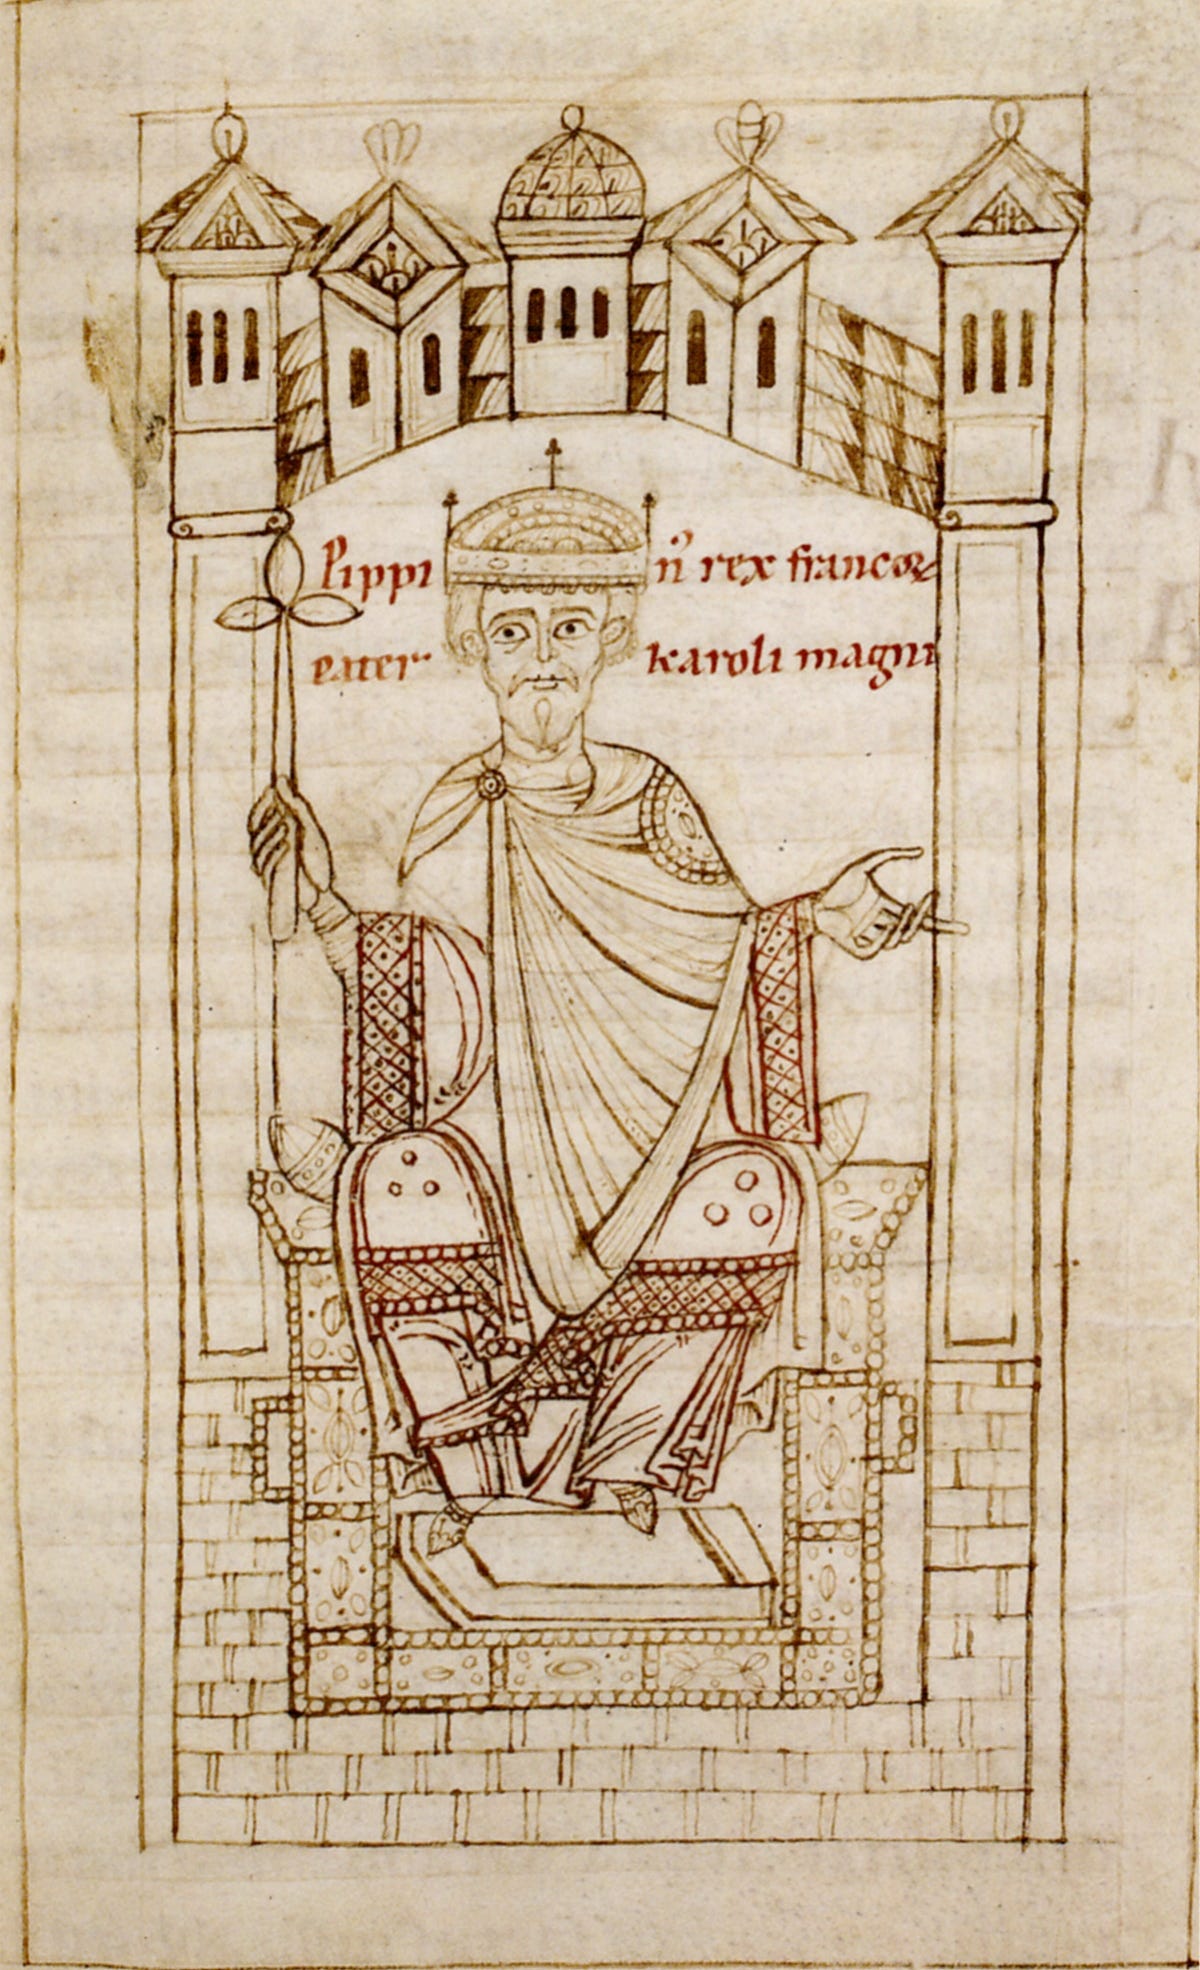 Pippi n᷒ rex francoꝝ
pater karoli magni